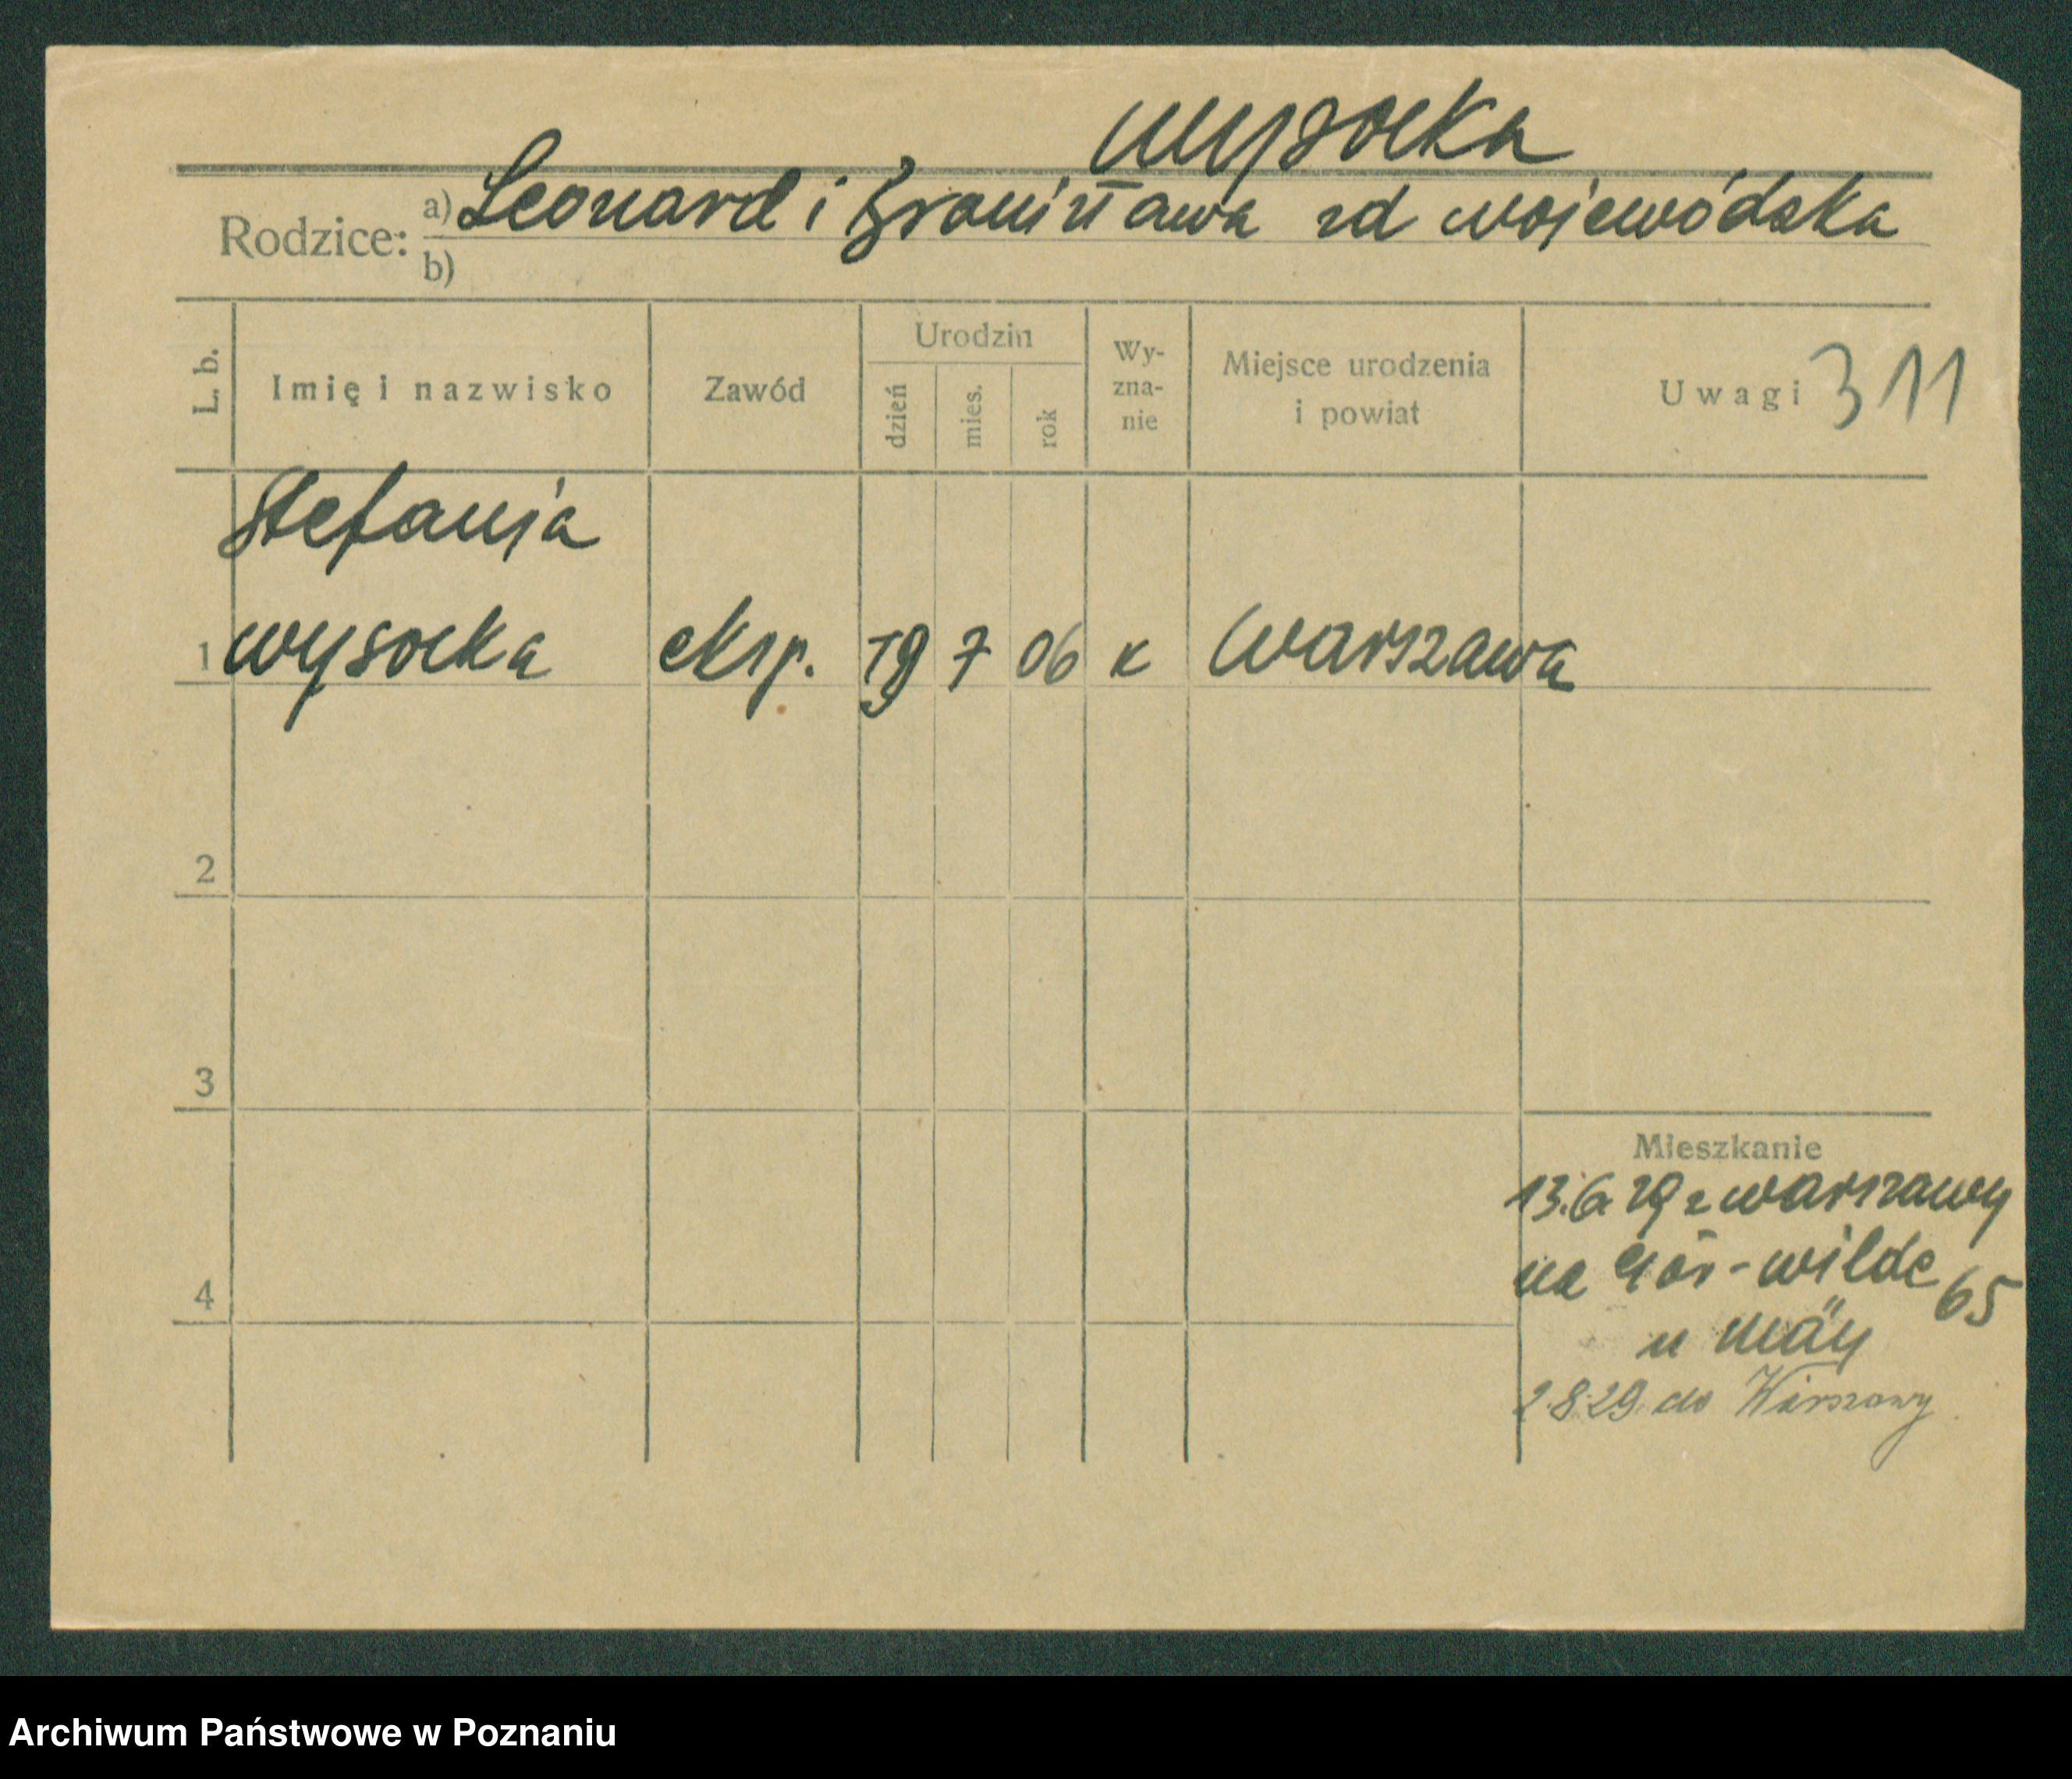 Wysocka
Rodzice: a) Leonard i Bronisława zd Wojewódzka
b)
L. b. Imię i nazwisko Zawód Urodzin dzień mies. rok Wy-zna-nie Miejsce urodzenia i powiat Uwagi 311
Stefanja
1 Wysocka eksp. 19 7 06 k Warszawa
2
3
Mieszkanie
13.6.29 z Warszawy
na Gór-Wilde 65
4
u
2.8.29. do Warszawy
Archiwum Państwowe w Poznaniu